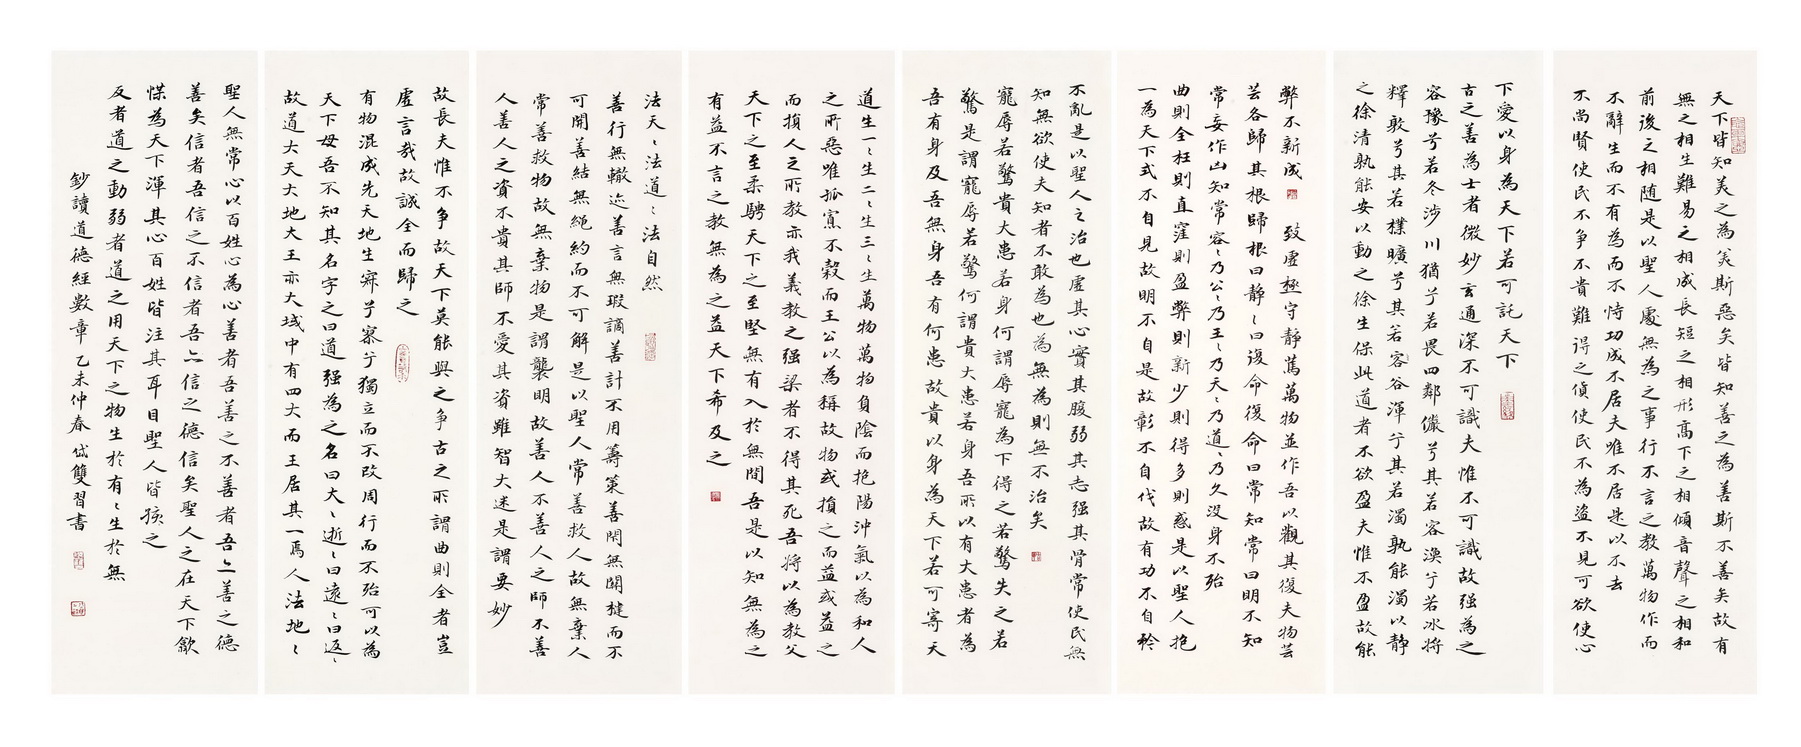 天下皆知美之為美斯惡矣皆知善之為善斯不善矣故有
無之相生難易之相成長短之相形高下之相傾音聲之相和
前後之相随是以聖人處無為之事行不言之教萬物作而
不辭生而不有為而不恃功成不居夫唯不居是以不去
不尚賢使民不争不貴難得之貨使民不為盜不見可欲使心
下愛以身為天下若可託天下
古之善為士者微妙玄通深不可識夫惟不可識故强為之
容豫兮若冬涉川猶兮若畏四鄰儼兮其若容渙兮若冰將
釋敦兮其若樸曠兮其若谷渾兮其若濁孰能濁以静
之徐清孰能安以動之徐生保此道者不欲盈夫惟不盈故能
弊不新成 致虛極守静篤萬物並作吾以觀其復夫物芸
芸各歸其根歸根曰静〻曰復命復命曰常知常曰明不知
常妄作凶知常容〻乃公〻乃王〻乃天〻乃道〻乃久没身不殆
曲則全枉則直窪則盈弊則新少則得多則惑是以聖人抱
一為天下式不自見故明不自是故彰不自伐故有功不自矜
不亂是以聖人之治也虛其心實其腹弱其志强其骨常使民無
知無欲使夫知者不敢為也為無為則無不治矣
寵辱若驚貴大患若身何謂辱寵為下得之若驚失之若
驚是謂寵辱若驚何謂貴大患若身吾所以有大患者為
吾有身及吾無身吾有何患故貴以身為天下若可寄天
道生一〻生二〻生三〻生萬物萬物負陰而抱陽沖氣以為和人
之所惡唯孤寡不穀而王公以為稱故物或損之而益或益之
而損人之所教亦我義教之强梁者不得其死吾将以為教父
天下之至柔騁天下之至堅無有入於無間吾是以知無為之
有益不言之教無為之益天下希及之
法天〻法道〻法自然
善行無轍迹善言無瑕謫善計不用籌策善閉無關楗而不
可開善結無繩約而不可解是以聖人常善救人故無棄人
常善救物故無棄物是謂襲明故善人不善人之師不善
人善人之資不貴其師不愛其資雖智大迷是謂要妙
故長夫惟不争故天下莫能與之争古之所謂曲則全者豈
虛言哉故誠全而歸之
有物混成先天地生寂兮寥兮獨立而不改周行而不殆可以為
天下母吾不知其名字之曰道强為之名曰大〻逝〻曰遠〻曰返〻
故道大天大地大王亦大域中有四大而王居其一焉人法地〻
聖人無常心以百姓心為心善者吾善之不善者吾亦善之德
善矣信者吾信之不信者吾亦信之德信矣聖人之在天下歙
惵為天下渾其心百姓皆注其耳目聖人皆孩之
反者道之動弱者道之用天下之物生於有〻生於無
鈔讀道德經數章乙未仲春 雙習書